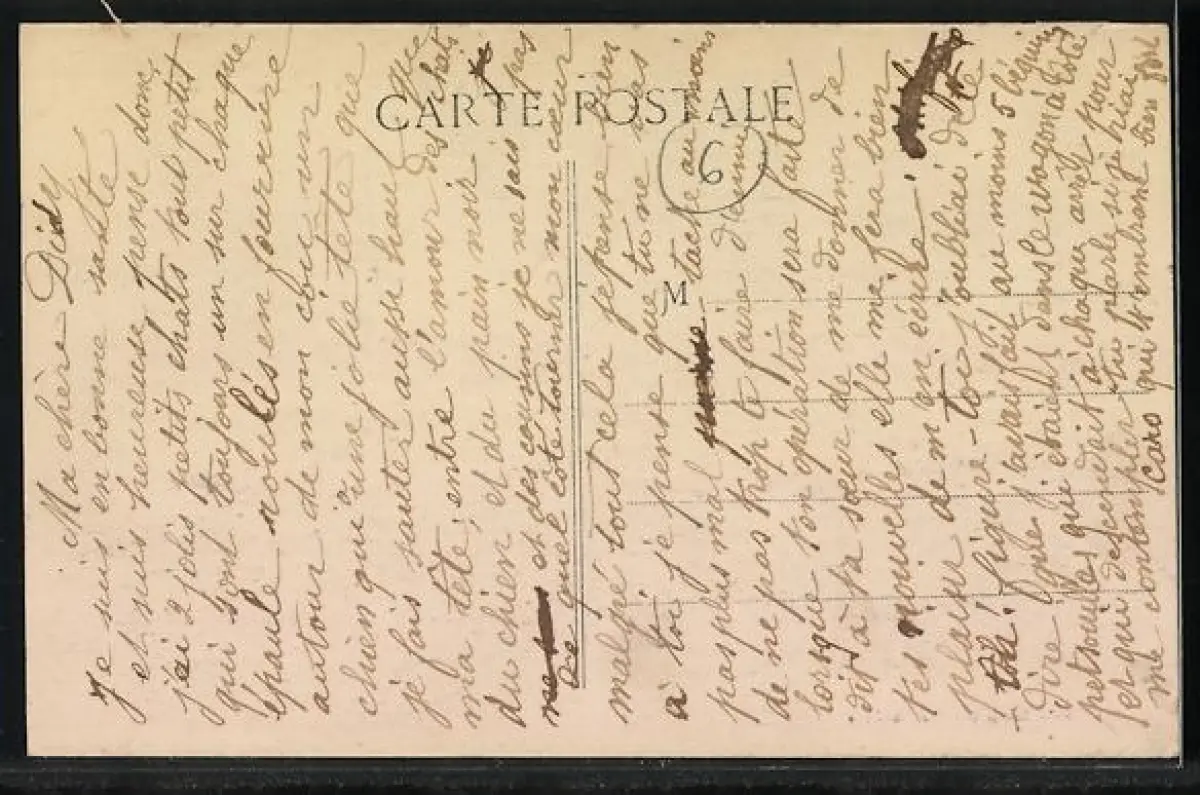 CARTE POSTALE
6
M
Ma chère Didy
Je suis en bonne santé
et suis heureuse pense donc
j'ai 2 jolis petits chats tout petit
qui sont toujours un sur chaque
épaule roulés en fourrure
autour de mon cou un
chien qui a une jolie tête que
je fais sauter aussi haut que
ma tête, entre l'amour des chats
du chien et du pain noir
et des cousins je ne sais pas
de quel côté tourner mon cœur
malgré tout cela je pense bien
à toi je pense que tu ne vas
pas plus mal tache au moins
de ne pas trop te faire d'ennui
lorsque ton opération sera faite
dis à ta sœur de me donner de
tes nouvelles elle me fera bien
plaisir de m'en écrire.
figure-toi j'oubliai de te
dire que j'avais fait au moins 5 béguins
qui étaient dans le wagon à côté
et qui descendait à chaque arrêt pour
me contempler
qui t'embrasse bien fort
Caro